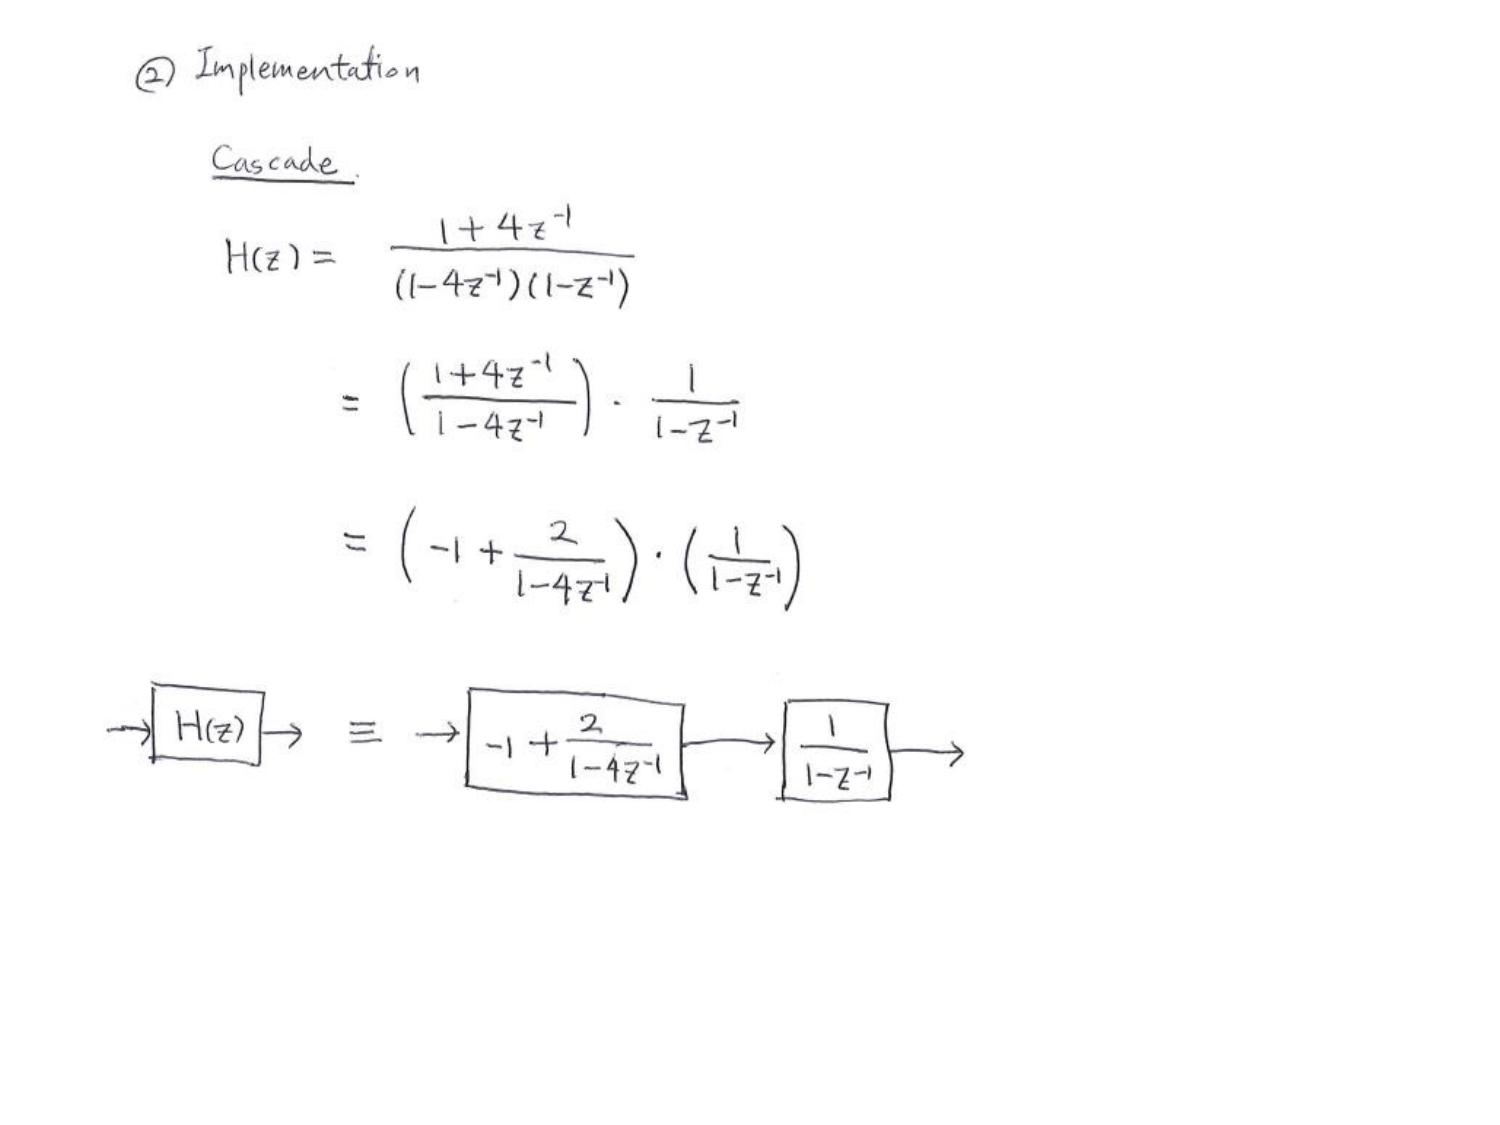 ② Implementation
Cascade.
H(z) = (1 + 4z⁻¹) / ((1 - 4z⁻¹)(1 - z⁻¹))
= ((1 + 4z⁻¹) / (1 - 4z⁻¹)) · 1 / (1 - z⁻¹)
= (-1 + 2 / (1 - 4z⁻¹)) · (1 / (1 - z⁻¹))
→ H(z) → ≡ → -1 + 2 / (1 - 4z⁻¹) → 1 / (1 - z⁻¹) →